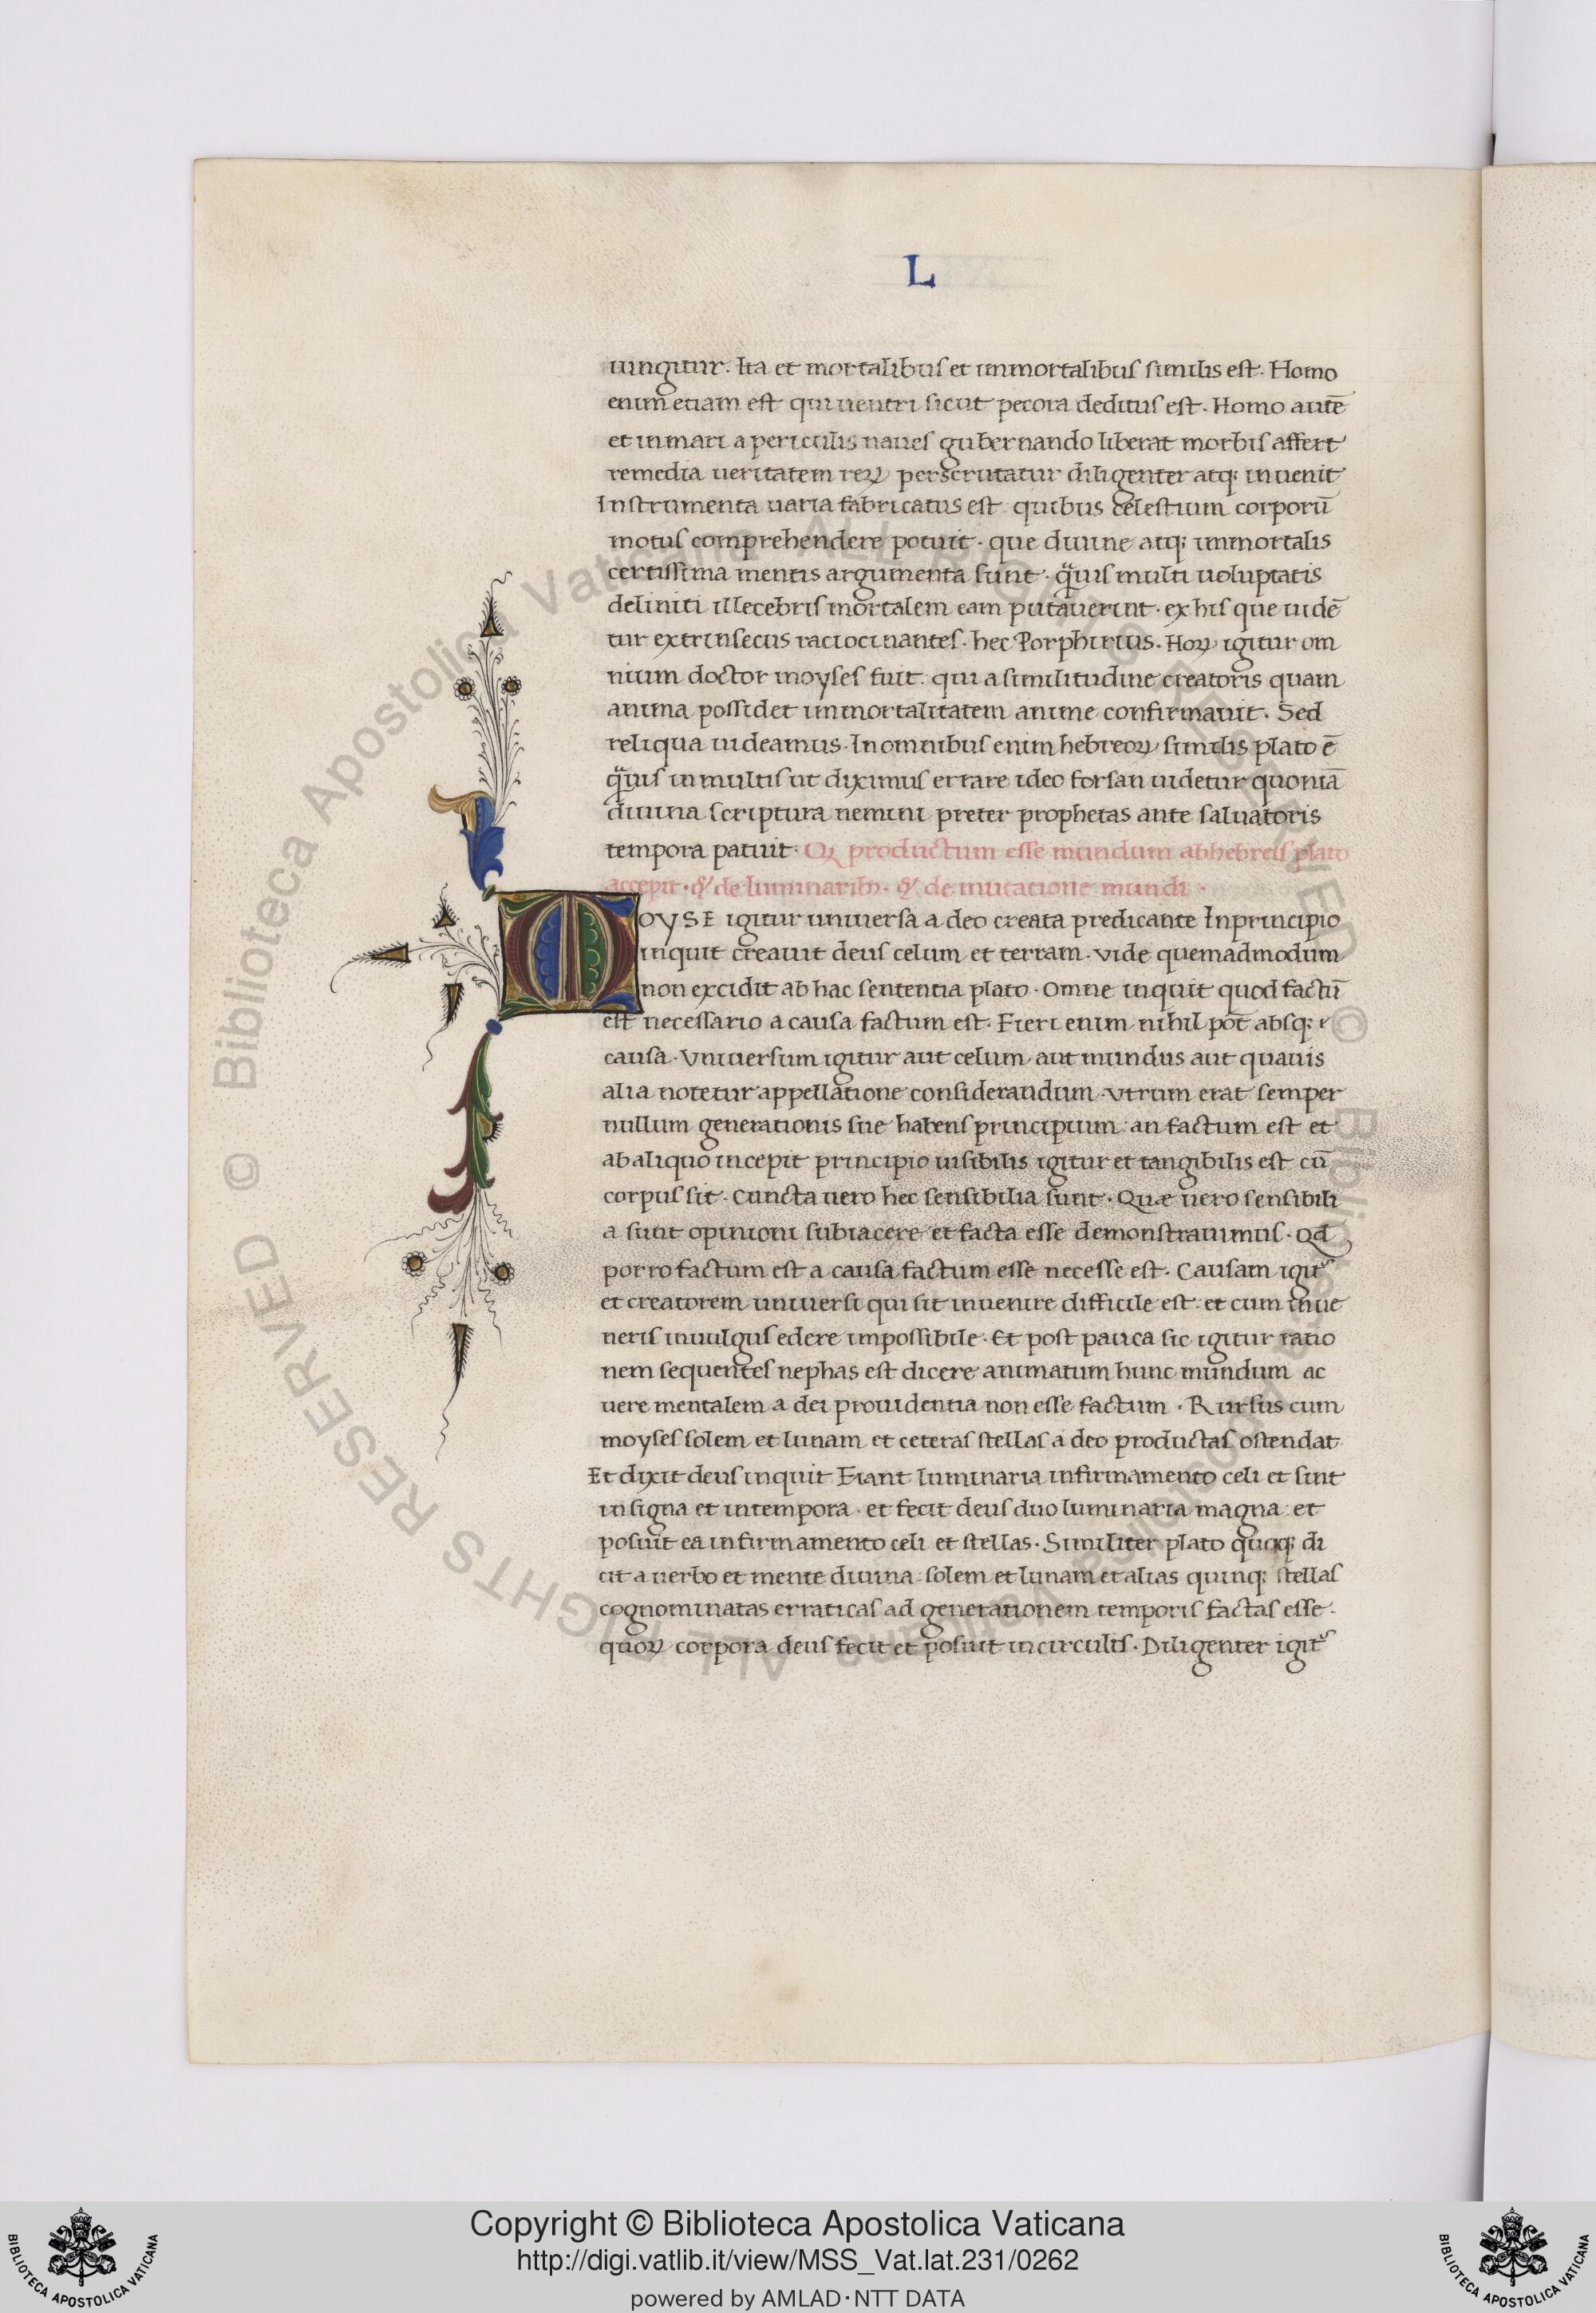 L
iungitur. Ita et mortalibus et immortalibus similis est. Homo
enim etiam est qui uentri sicut pecora deditus est. Homo autē
et in mari a periculis naues gubernando liberat morbis affert
remedia ueritatem reꝝ perscrutatur diligenter atq; inuenit
Instrumenta uaria fabricatus est quibus celestium corporū
motus comprehendere potuit. que diuine atq; immortalis
certissima mentis argumenta sunt. q̄uis multi uoluptatis
deliniti illecebris mortalem eam putauerint. ex his que uidē
tur extrinsecus raciocinantes. hec Porphirius. Hoꝝ igitur om
nium doctor moyses fuit. qui a similitudine creatoris quam
anima possidet immortalitatem anime confirmauit. Sed
reliqua uideamus. In omnibus enim hebreoꝝ similis plato ē
q̄uis in multis ut diximus errare ideo forsan uidetur quoniā
diuina scriptura nemini preter prophetas ante saluatoris
tempora patuit. Qꝫ productum esse mundum ab hebreis plato
accepit. & de luminarib;. & de mutatione mundi.
MOYSE igitur uniuersa a deo creata predicante In principio
inquit creauit deus celum et terram. vide quemadmodum
non excidit ab hac sententia plato. Omne inquit quod factū
est necessario a causa factum est. Fieri enim nihil pōt absq;
causa. Vniuersum igitur aut celum aut mundus aut quauis
alia notetur appellatione considerandum. vtrum erat semper
nullum generationis sue habens principium: an factum est et
ab aliquo incepit principio uisibilis igitur et tangibilis est cū
corpus sit. Cuncta uero hec sensibilia sunt. Quæ uero sensibili
a sunt opinioni subiacere et facta esse demonstrauimus. Qd
porro factum est a causa factum esse necesse est. Causam igit᷑
et creatorem uniuersi qui sit inuenire difficile est. et cum inue
neris in uulgus edere impossibile. Et post pauca sic igitur ratio
nem sequentes nephas est dicere animatum hunc mundum ac
uere mentalem a dei prouidentia non esse factum. Rursus cum
moyses solem et lunam et ceteras stellas a deo productas ostendat
Et dixit deus inquit Fiant luminaria in firmamento celi et sint
in signa et in tempora. et fecit deus duo luminaria magna et
posuit ea in firmamento celi et stellas. Similiter plato quoq; di
cit a uerbo et mente diuina: solem et lunam et alias quinq; stellas
cognominatas erraticas ad generationem temporis factas esse.
quoꝝ corpora deus fecit et posuit in circulis. Diligenter igit᷑
© Biblioteca Apostolica Vaticana ALL RIGHTS RESERVED © Biblioteca Apostolica Vaticana ALL RIGHTS RESERVED
Copyright © Biblioteca Apostolica Vaticana
http://digi.vatlib.it/view/MSS_Vat.lat.231/0262
powered by AMLAD·NTT DATA
BIBLIOTECA APOSTOLICA VATICANA
BIBLIOTECA APOSTOLICA VATICANA